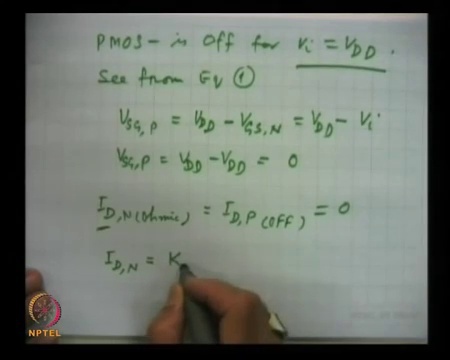 PMOS - is Off for Vi = VDD .
See from Eq ①
VSG,P = VDD - VGS,N = VDD - Vi
VSG,P = VDD - VDD = 0
ID,N(ohmic) = ID,P(OFF) = 0
ID,N = K
NPTEL